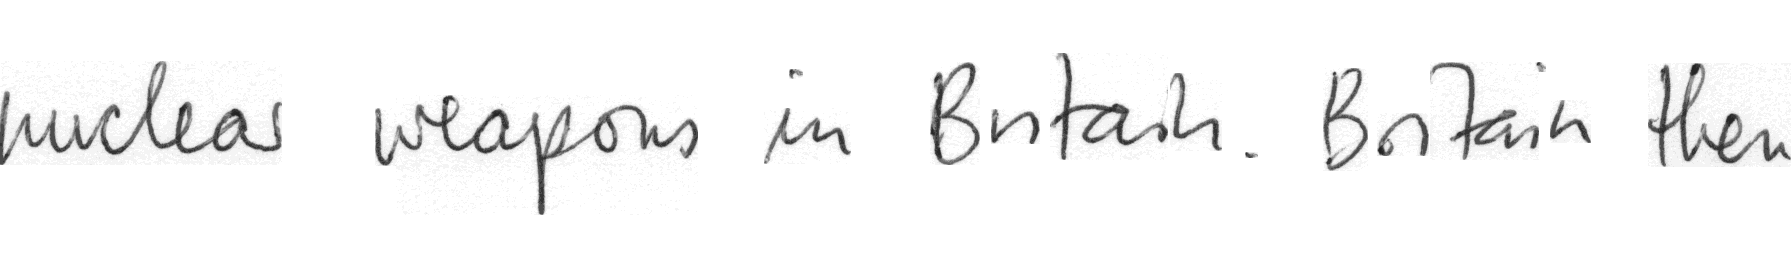 nuclear weapons in Britain. Britain then